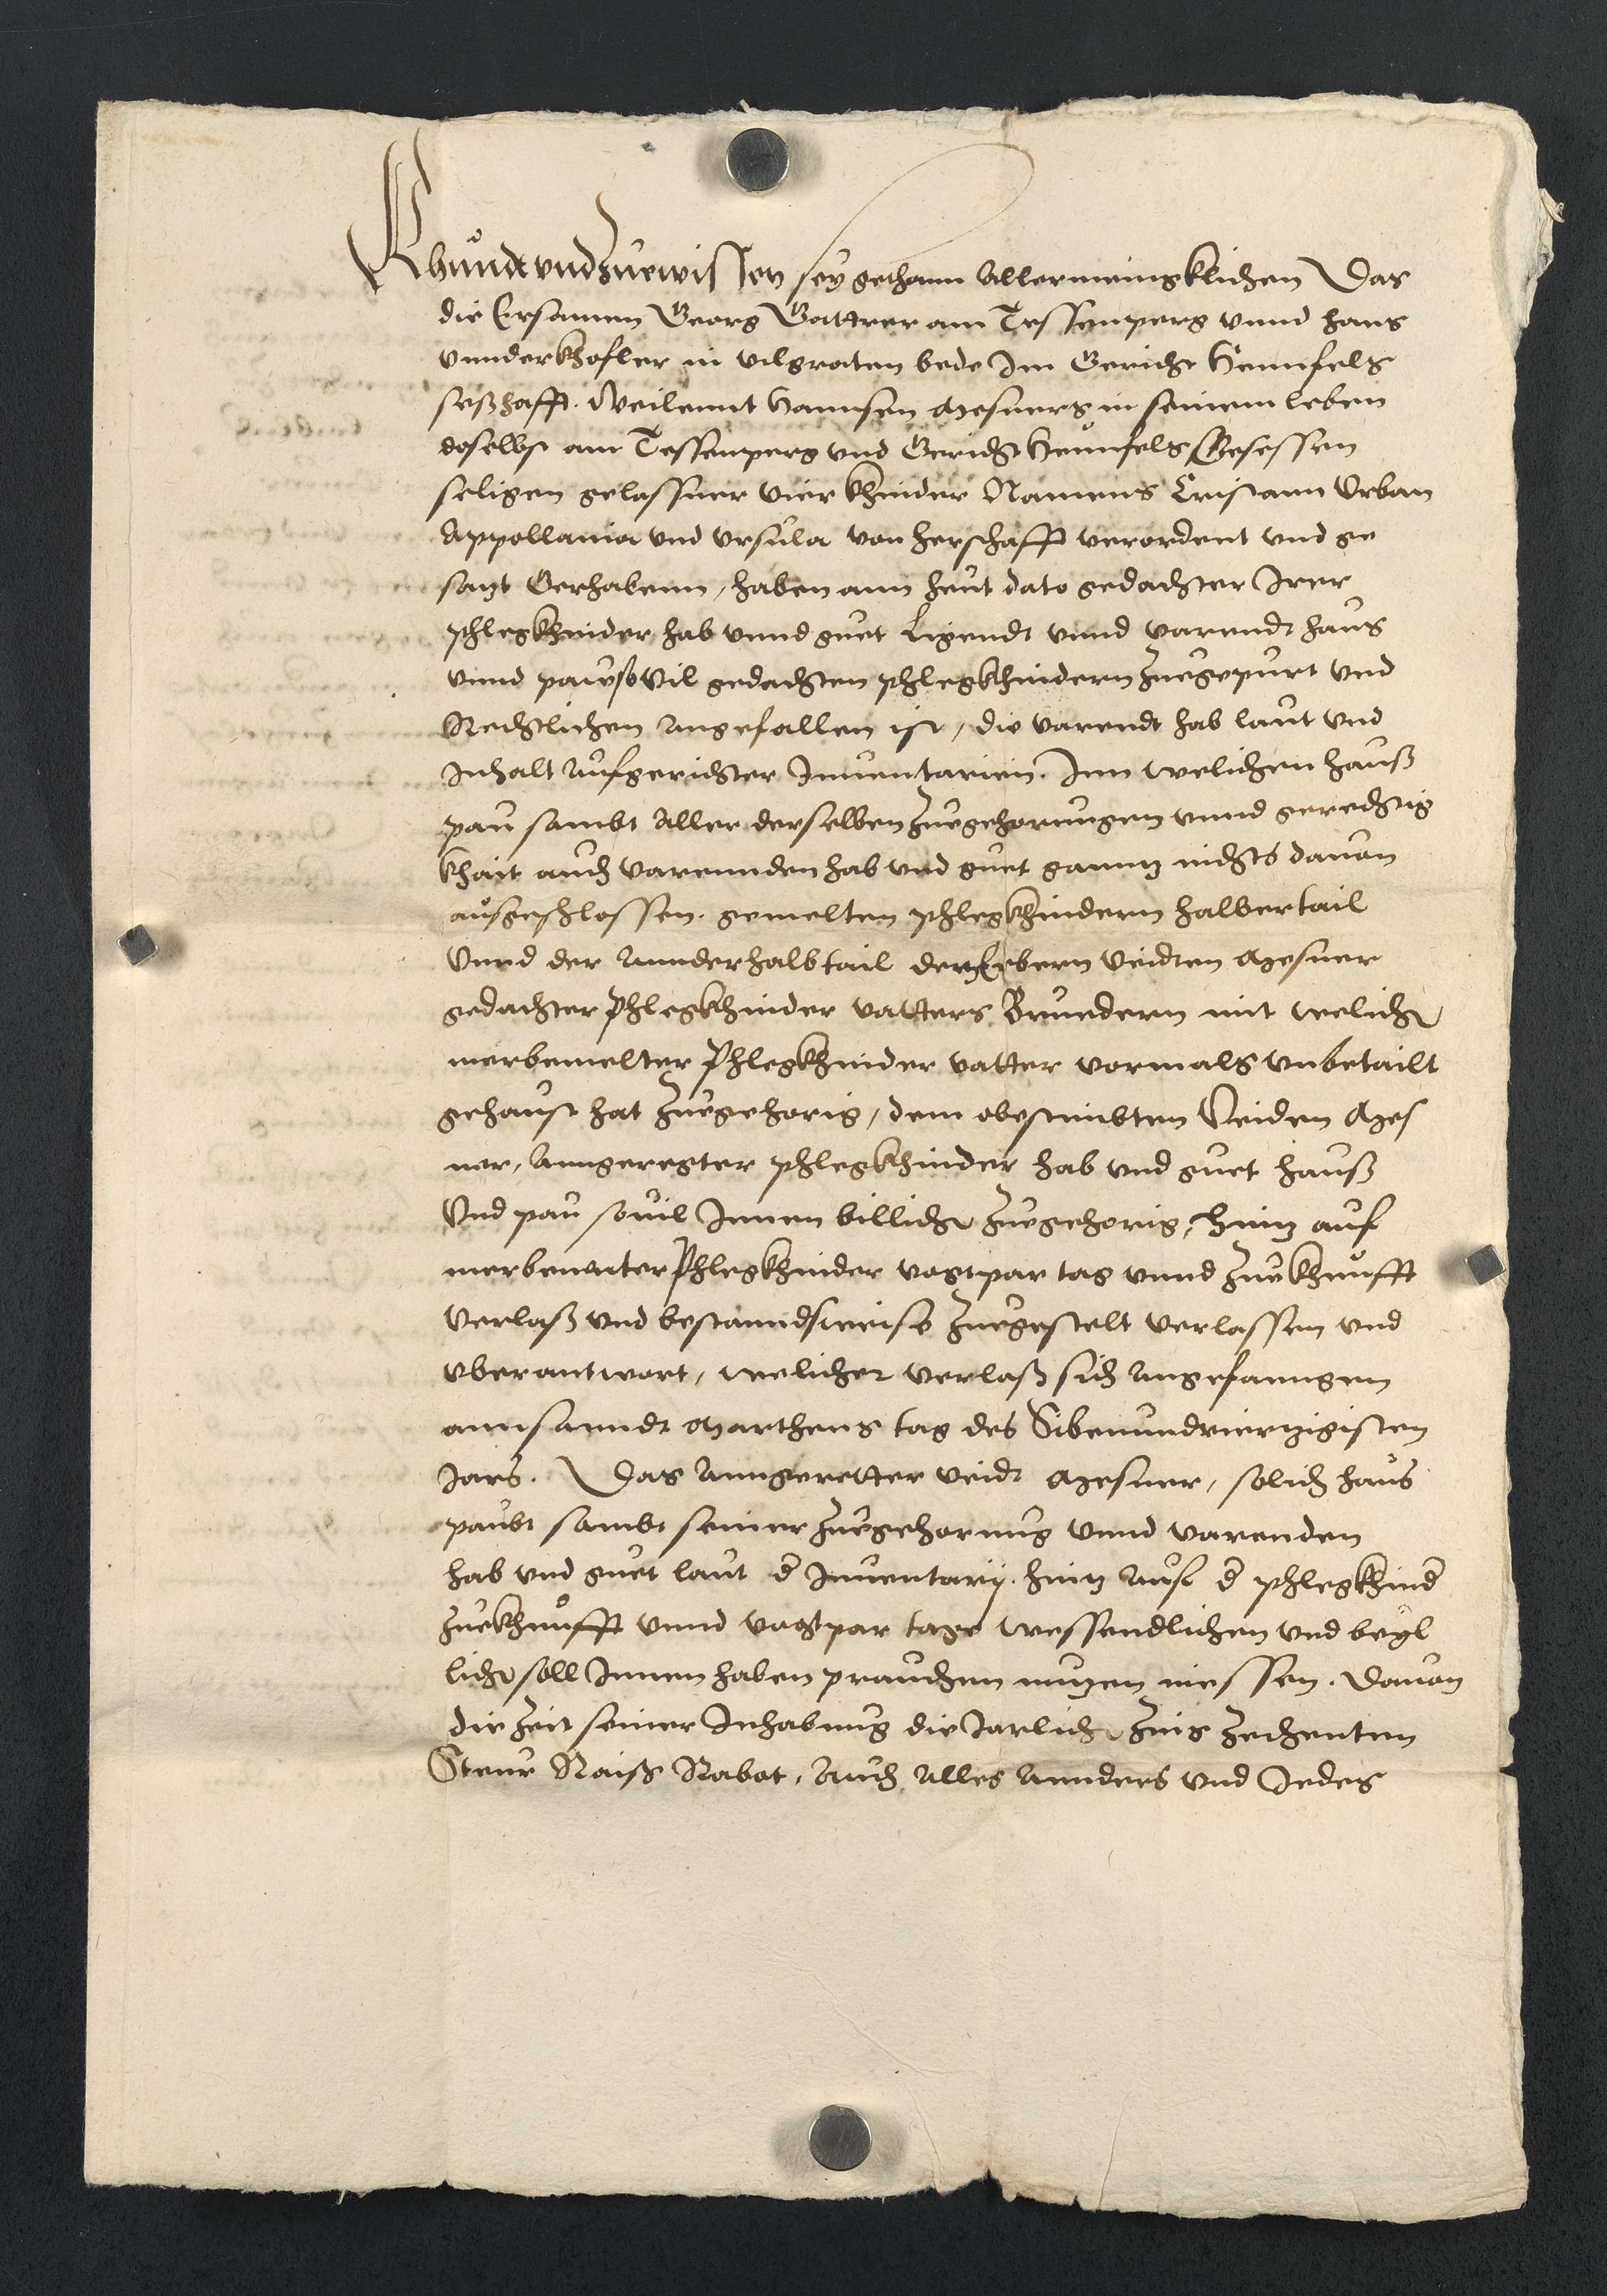 Khundt vnd Zuewissen sey gethann Allermeingklichen Das
die Ersamen Georg Gattrer am Tessenperg vnnd hans
vnnderkhofler in vilgraten bede Im Gericht Heunfels
seßhafft. Weilennt Hannsen Mesners in seinem leben
doselbs am Tessenperg vnd Gericht Heunfels Gesessen
seligen gelassner vier khinder Namens Cristann Vrban
Appollania vnd vrsula von herschafft verordent vnd ge
satzt Gerhabenn, haben ann heut dato gedachter Irer
phlegkhinder hab vnnd guet Ligendt vnnd varendt haus
vnnd paw so Vil gedachten phlegkhindern Zuegepurt vnd
Rechtlichen Angefallen ist, die varendt hab laut vnd
Inhalt Aufgerichter Inuentarien. Inn welichen hauß
pau sambt Aller derselben Zuegehorungen vnnd gerechtig
khait auch varennden hab vnd guet ganntz nichts dauon
ausgeschlossen. gemelten phlegkhindern halbertail
Vnnd der Annder halbtail dem Erbern Veidten Mesner
gedachter Phlegkhinder vatters Bruedern mit welicher
merbemelter Phlegkhinder vatter vormals vnbetailt
gehaust hat Zuegehorig, dem obestimbten Veiden Mes
ner, Anngeregter phlegkhinder hab vnd guet hauß
Vnd pau souil Innen billicher Zuegehorig, hintz auf
merbenanter Phlegkhinder vogtpar tag vnnd Zuekhunfft
Verlaß vnd bestanndsweise Zuegestelt verlassen vnd
vberantwort, welicher verlaß sich Angefanngen
ann sanndt Marthens tag des Sibenundviertzigisten
Jars. Das Anngeretter veidt Mesner, solich haus
paubt sambt seiner Zuegehorung vnnd varenden
hab vnd guet laut d Inuentarij. hintz Auf d phlegkhind
Zuekhunfft vnnd vogtpar tage wessendlichen vnd beyl
licher soll Innen haben prauchen nutzen niessen. Dauon
die Zeit seiner Inhabung die Jarlicher Zins Zechenten
Steur Raiß Robat, Auch Alles Annders vnd Jedes